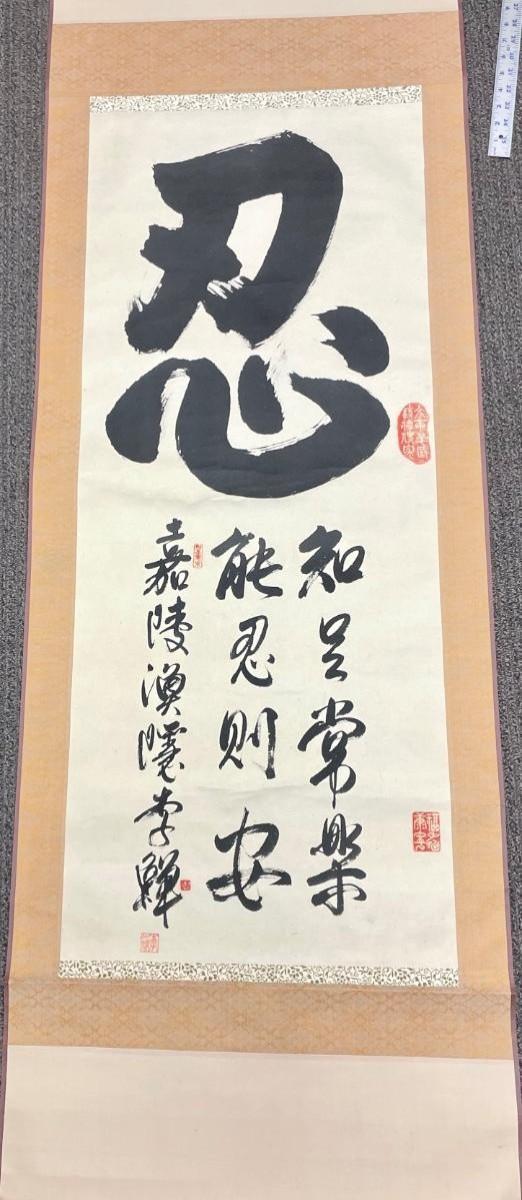 忍
知足常樂
能忍則安
嘉陵漁隱李蟬